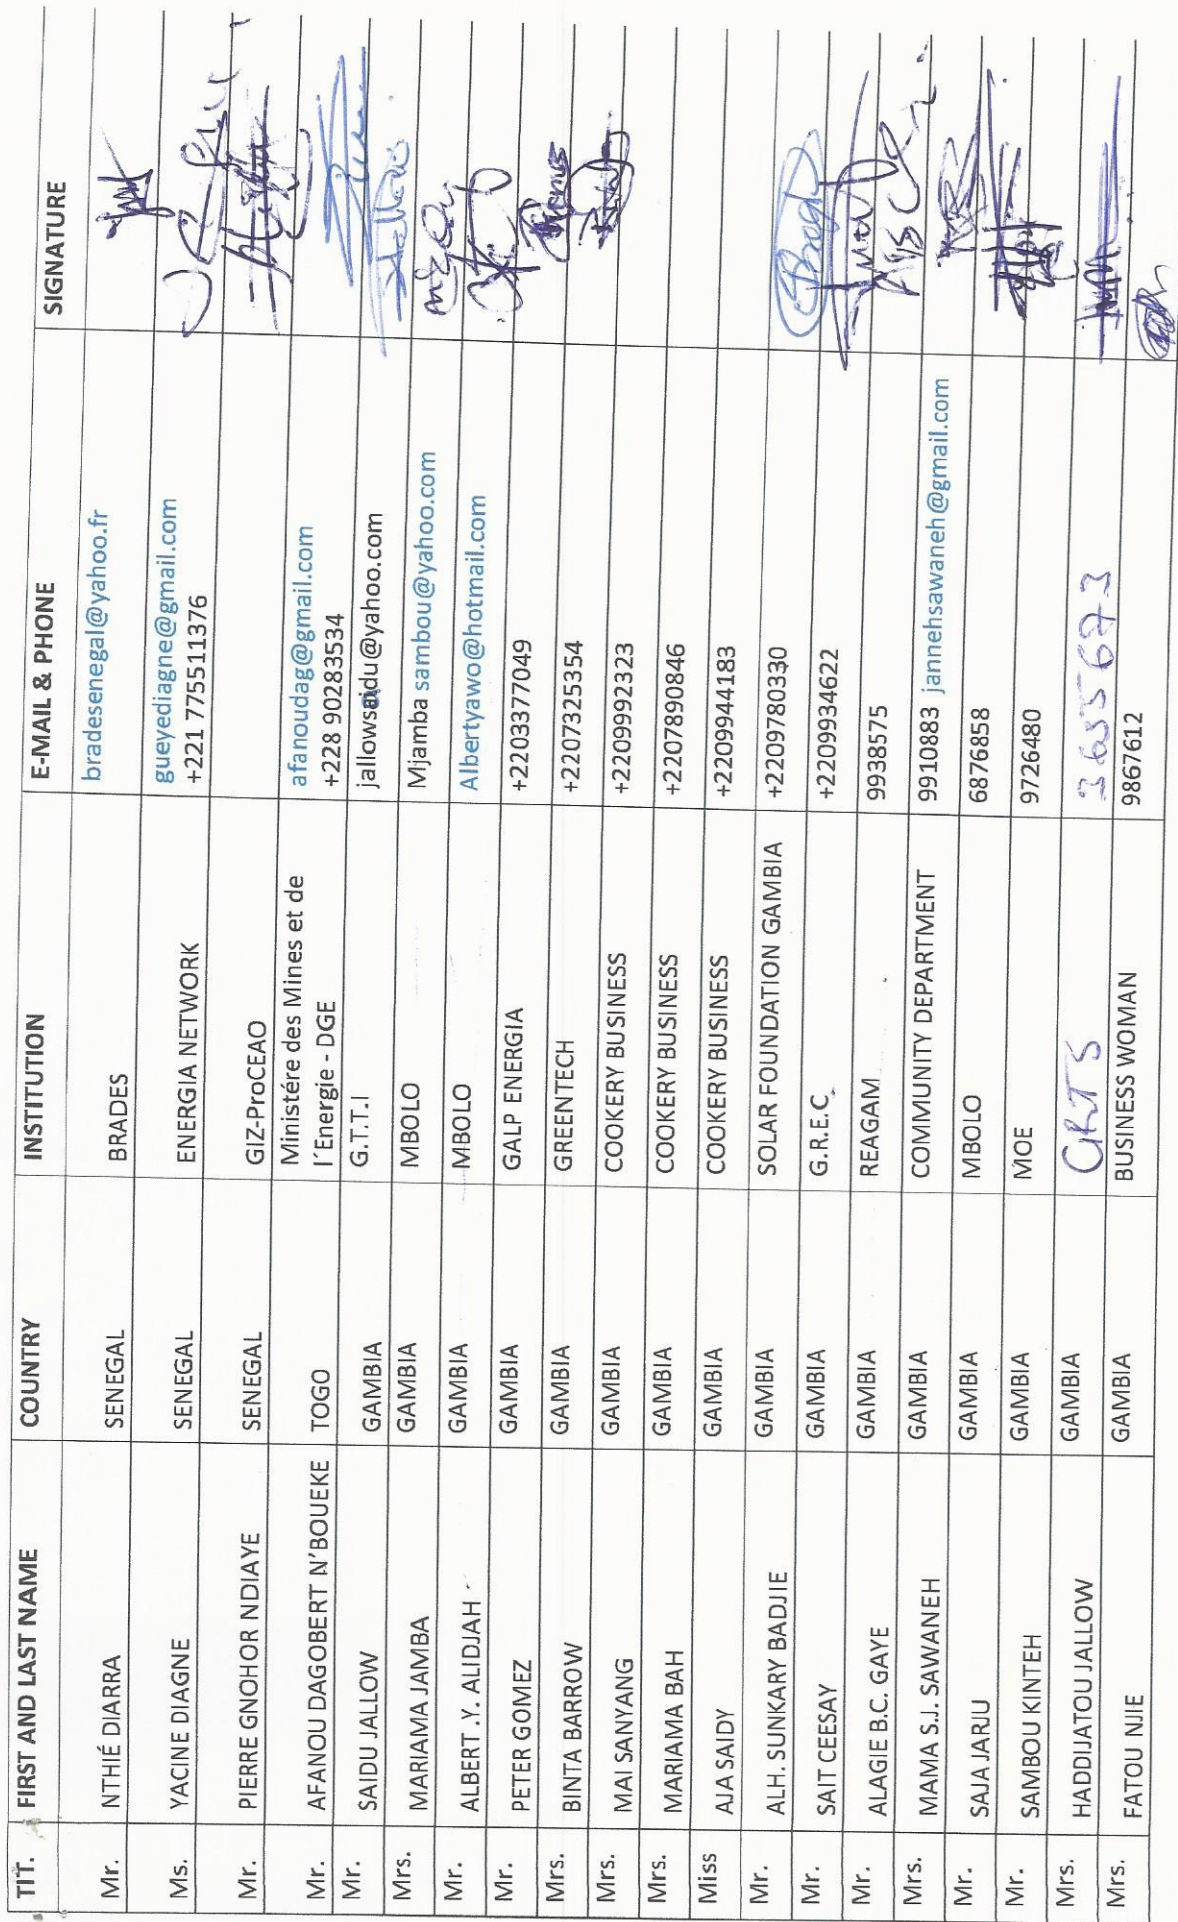 TIT. FIRST AND LAST NAME COUNTRY INSTITUTION E-MAIL & PHONE SIGNATURE
Mr. NTHIÉ DIARRA SENEGAL BRADES bradesenegal@yahoo.fr
Ms. YACINE DIAGNE SENEGAL ENERGIA NETWORK gueyediagne@gmail.com
+221 775511376
Mr. PIERRE GNOHOR NDIAYE SENEGAL GIZ-ProCEAO
Mr. AFANOU DAGOBERT N'BOUEKE TOGO Ministére des Mines et de afanoudag@gmail.com
l´Energie - DGE +228 90283534
Mr. SAIDU JALLOW GAMBIA G.T.T.I jallowsaidu@yahoo.com
Mrs. MARIAMA JAMBA GAMBIA MBOLO Mjamba sambou@yahoo.com
Mr. ALBERT .Y. ALIDJAH GAMBIA MBOLO Albertyawo@hotmail.com
Mr. PETER GOMEZ GAMBIA GALP ENERGIA +2203377049
Mrs. BINTA BARROW GAMBIA GREENTECH +2207325354
Mrs. MAI SANYANG GAMBIA COOKERY BUSINESS +2209992323
Mrs. MARIAMA BAH GAMBIA COOKERY BUSINESS +2207890846
Miss AJA SAIDY GAMBIA COOKERY BUSINESS +2209944183
Mr. ALH. SUNKARY BADJIE GAMBIA SOLAR FOUNDATION GAMBIA +2209780330
Mr. SAIT CEESAY GAMBIA G.R.E.C +2209934622
Mr. ALAGIE B.C. GAYE GAMBIA REAGAM 9938575
Mrs. MAMA S.J. SAWANEH GAMBIA COMMUNITY DEPARTMENT 9910883 jannehsawaneh@gmail.com
Mr. SAJA JARJU GAMBIA MBOLO 6876858
Mr. SAMBOU KINTEH GAMBIA MOE 9726480
Mrs. HADDIJATOU JALLOW GAMBIA GRTS 3655673
Mrs. FATOU NJIE GAMBIA BUSINESS WOMAN 9867612